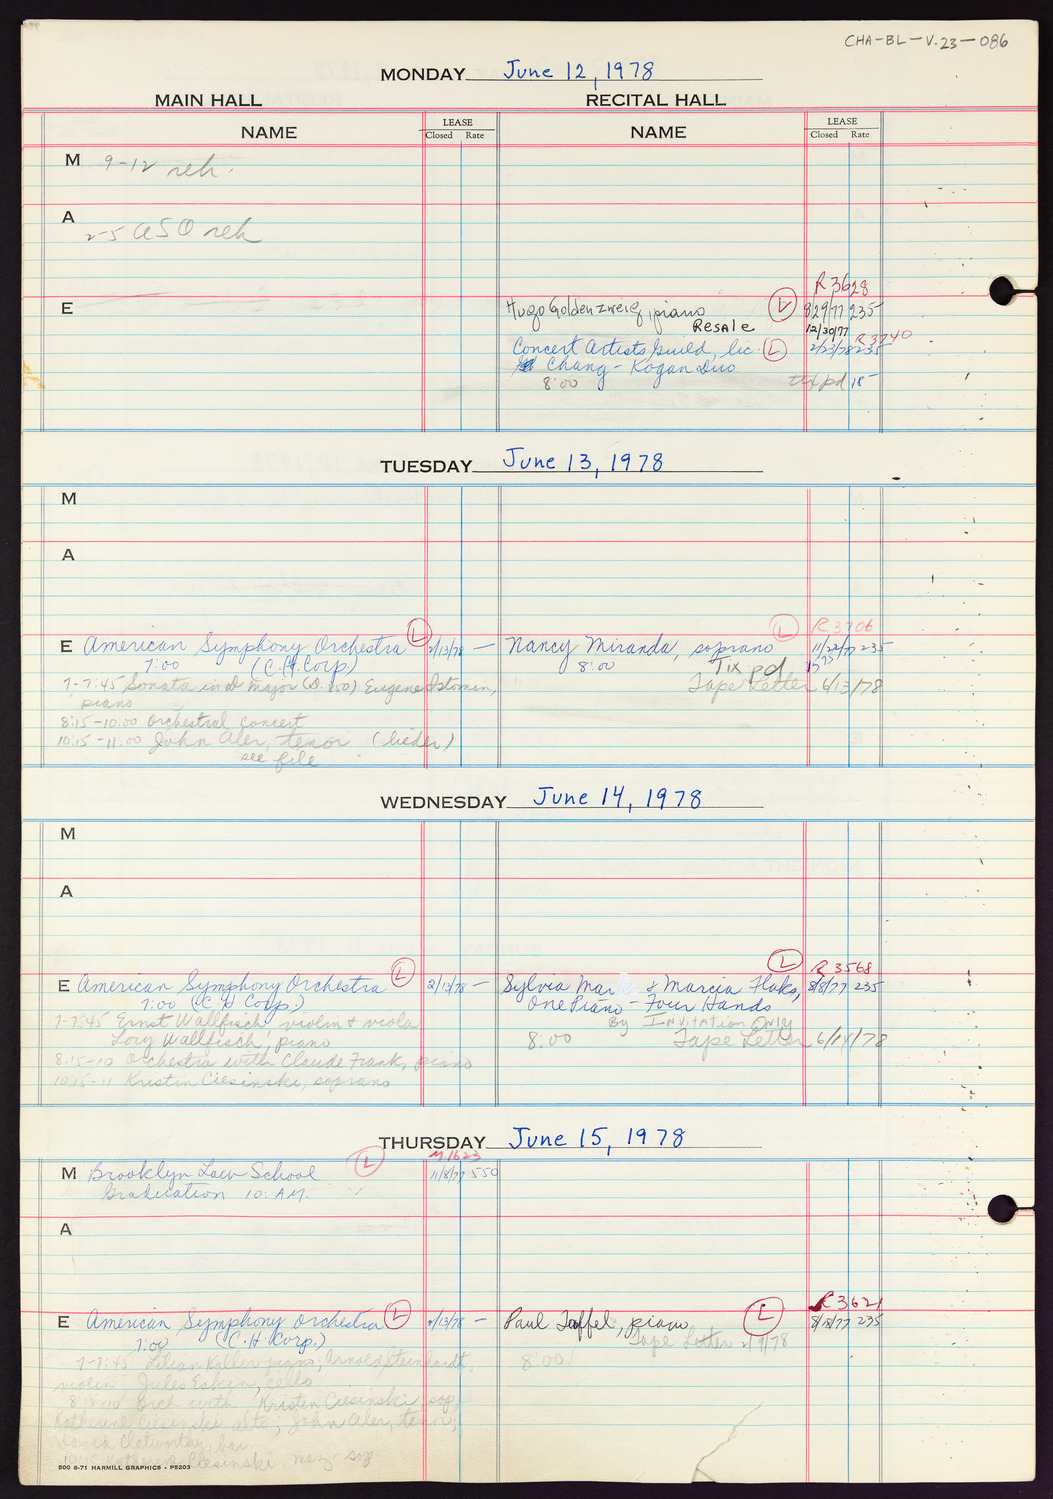 CHA-BL-V.23-086
MONDAY June 12, 1978
MAIN HALL
RECITAL HALL
NAME
LEASE
Closed Rate
NAME
LEASE
Closed Rate
M 9-12 reh.
A 2-5 ASO reh
R 3628
E
Hugo Goldenzweig, piano L 8/29/77 235-
Resale 12/30/77
Concert Artists Guild, Inc. L 2/23/78 235 R3740
Chang - Kogan Duo
8:00 tix pd 15-
TUESDAY June 13, 1978
M
A
L R3706
E American Symphony Orchestra L 2/13/78 - Nancy Miranda, soprano 11/22/77 235-
7:00 (C.H. Corp.) 8:00 Tix pd
7-7:45 Sonata in major Eugene Istomin, Tape Letter 6/13/78
piano
8:15-10:00 orchestral concert
10:15-11:00 John Aler, tenor (lieder)
see file
WEDNESDAY June 14, 1978
M
A
L R3568
E American Symphony Orchestra L 2/13/78 - Sylvia & Marcia Flaks, 8/8/77 235
7:00 (C.H Corp.) One Piano - Four Hands
7-7:45 Ernst Wallfisch violin & viola By Invitation Only
Lory Wallfisch, piano 8:00 Tape Letter 6/14/78
8:15-10 Orchestra with Claude Frank, piano
10:15-11 Kristin Ciesinski, soprano
THURSDAY June 15, 1978
M.1623
M Brooklyn Law School L 11/8/77 550
Graduation 10: A.M.
A
R3621
E American Symphony orchestra L 2/13/78 - Paul Toffel, piano L 8/18/77 235
7:00 (C.H Corp.) Tape Letter 2/9/78
7-7:45 Lilian Kallir piano, Arnold Steinhardt, 8:00
violin Jules Eskin, cello
8:15-10 Orch with Kristin Ciesinski sop,
Katherine Ciesinski alto; John Aler, tenor;
David Clatworthy, bar
Katherine Ciesinski, mezz-sop
500 6-71 HARMILL GRAPHICS - P5203